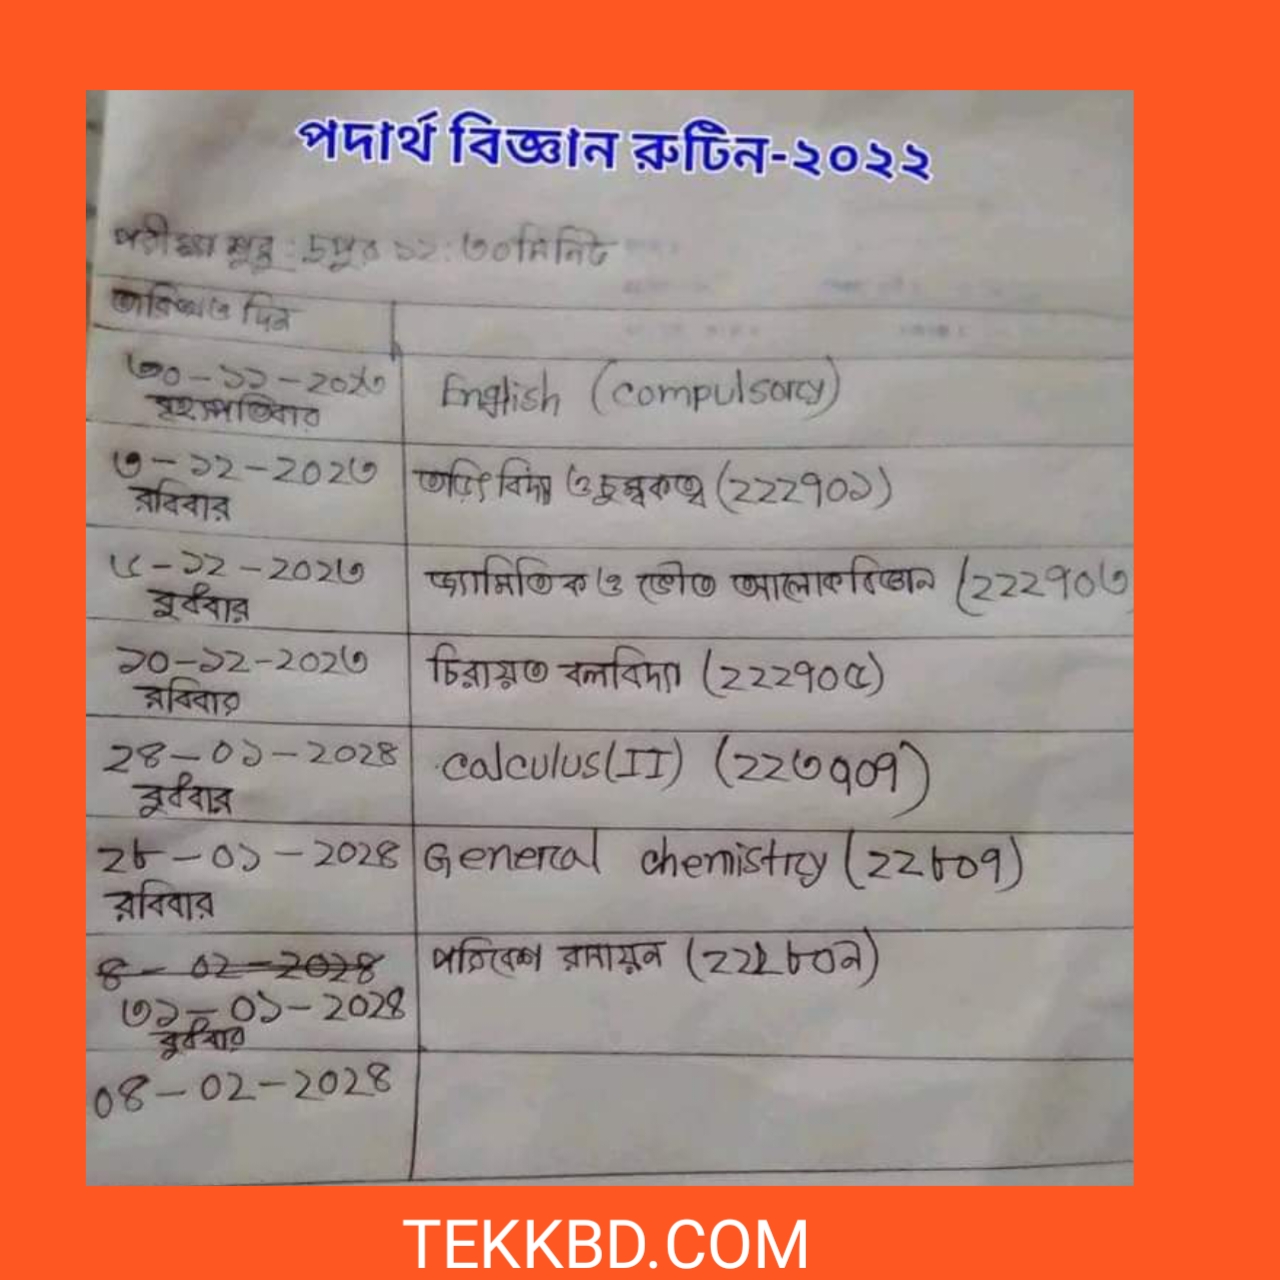 পদার্থ বিজ্ঞান রুটিন-২০২২
পরীক্ষা শুরু : দুপুর ১২:৩০মিনিট
তারিখ ও দিন
৩০-১১-২০২৩ English (compulsory)
বৃহস্পতিবার
৩-১২-২০২৩ তড়িৎ বিদ্যা ও চুম্বকত্ব (২২২৭০১)
রবিবার
৬-১২-২০২৩ জ্যামিতিক ও ভৌত আলোকবিজ্ঞান (২২২৭০৩
বুধবার
১০-১২-২০২৩ চিরায়ত বলবিদ্যা (২২২৭০৫)
রবিবার
২৪-০১-২০২৪ Calculus(II) (২২৩৭০৭)
বুধবার
২৮-০১-২০২৪ General chemistry (২২৮০৭)
রবিবার
৪-০২-২০২৪ পরিবেশ রসায়ন (২২২৮০৯)
৩১-০১-২০২৪
বুধবার
০৪-০২-২০২৪
TEKKBD.COM